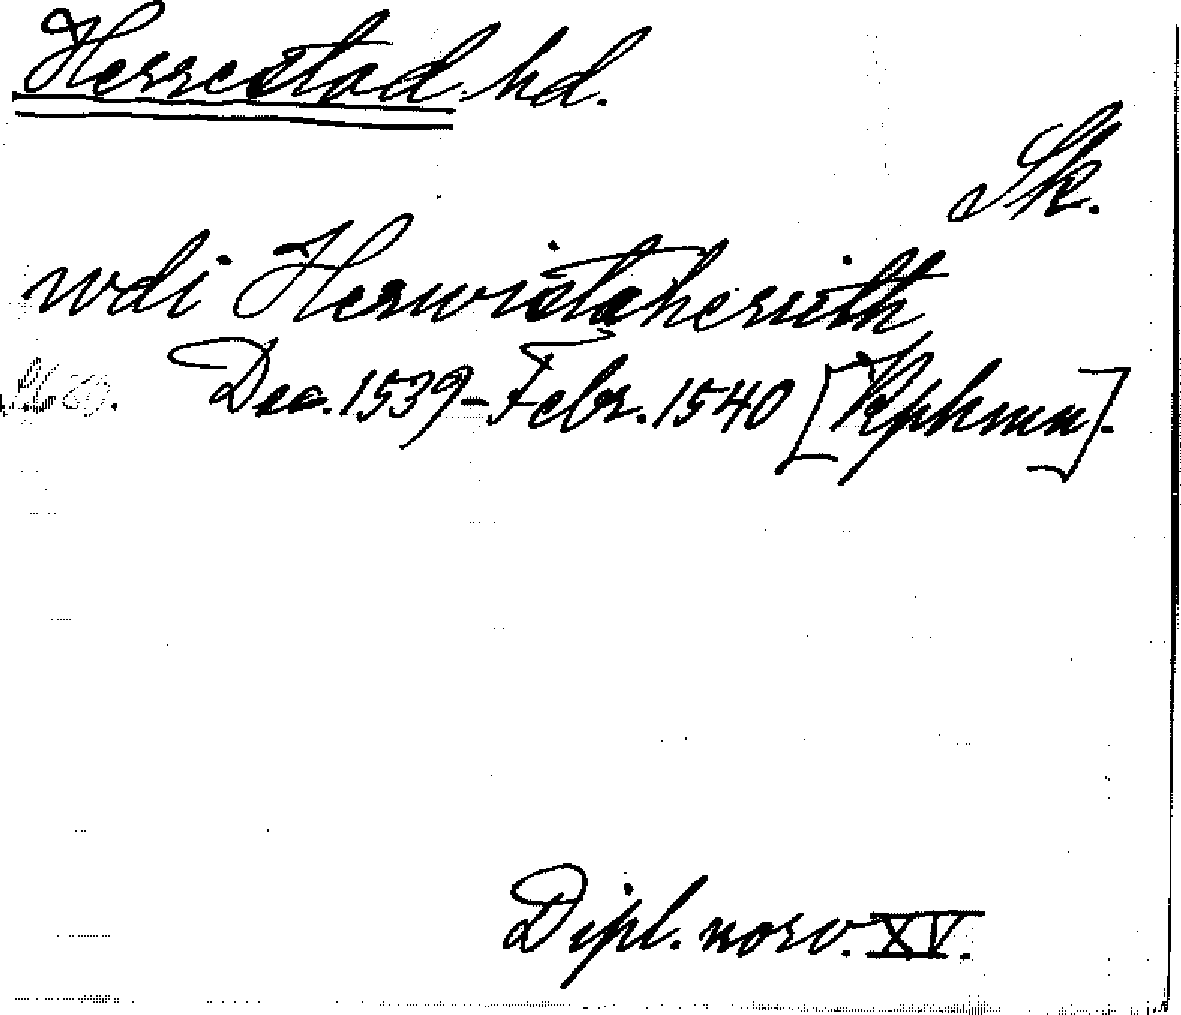 Herrestad hd.
Sk.
wdi Herwistæherrith
Dec. 1539-Febr. 1540 [Kphmn].
Dipl. norv. XV.